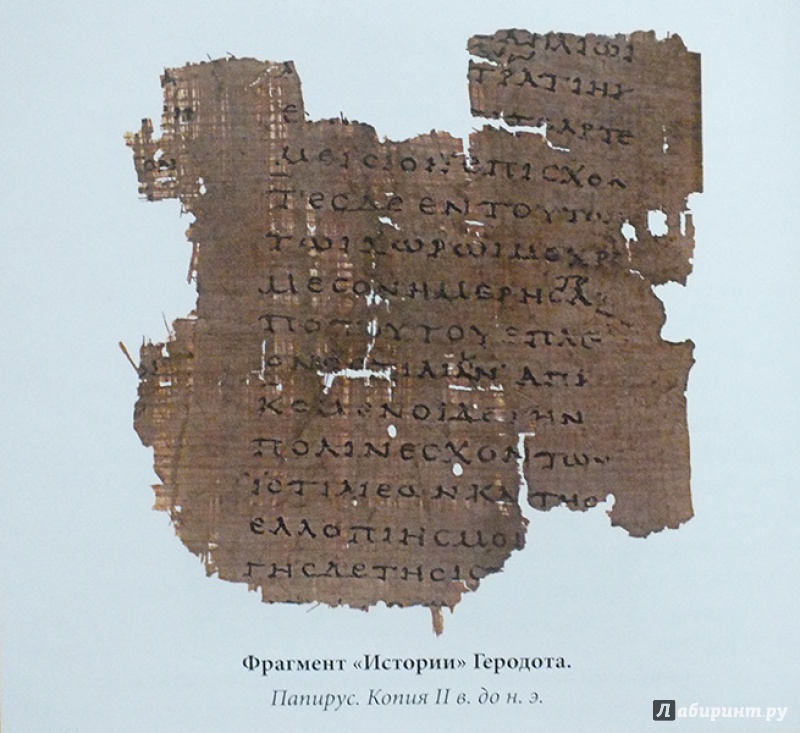 ΤΡΑΤΙΗΙ
ΑΡΤΕ
ΜΕΙϹΙΟΝ: ΕΠΙϹΧΟΝ
ΤΕϹΔΕΕΝΤΟΥΤΩ
ΤΩΙΧΩΡΩΙΜΕΧΡΙ
ΜΕϹΟΝΗΜΕΡΗϹ
ΠΟΤΟΥΤΟΥΕΠΛΕ
ΑΠΙ
ΚΟΜΕΝΟΙΔΕΤΗΝ
ΠΟΛΙΝΕϹΧΟΝΤΩΝ
ΙϹΤΙΑΙΕΩΝΚΑΙΤΗϹ
ΕΛΛΟΠΙΗϹΜΟΙ
ΓΗϹΔΕΤΗϹΙϹ
Фрагмент «Истории» Геродота.
Папирус. Копия II в. до н. э.
Лабиринт.ру